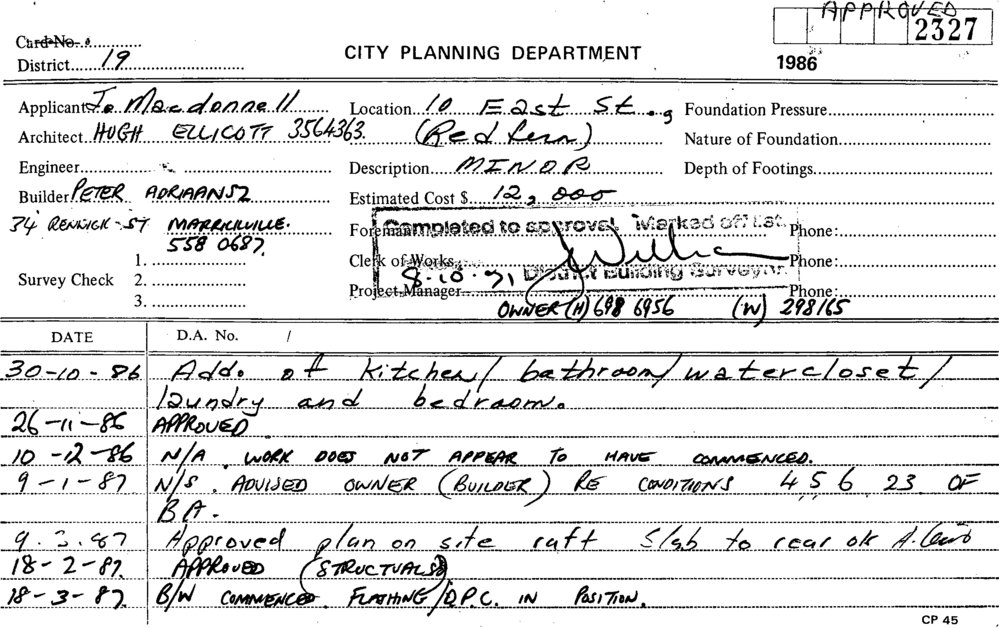 APPROVED
2327
Card No.
District 19
CITY PLANNING DEPARTMENT
1986
Applicant Macdonnell Location 10 East St., Foundation Pressure
Architect HUGH ELLICOTT 3564363. (Redfern) Nature of Foundation
Engineer Description MINOR Depth of Footings
Builder PETER ADRIAANSZ Estimated Cost $ 12,000
34 RENWICK ST MARRICKVILLE. Foreman Completed to approval. Marked off list. Phone:
558 0687.
1. Clerk of Works Phone:
Survey Check 2. 8-10-91 District Building Surveyor.
3. Project Manager Phone:
OWNER (H) 698 6956 (W) 298165
DATE D.A. No. /
30-10-86 Add. of kitchen/bathroom/watercloset/
laundry and bedroom.
26-11-86 APPROVED
10-12-86 N/A. WORK DOES NOT APPEAR TO HAVE COMMENCED.
9-1-87 N/S. ADVISED OWNER (BUILDER) RE CONDITIONS 4, 5, 6, 23 OF
BA.
Approved plan on site raft Slab to rear ok
18-2-87. APPROVED (STRUCTUALS)
18-3-87. B/W COMMENCED. FLASHING/D.P.C. IN POSITION.
CP 45